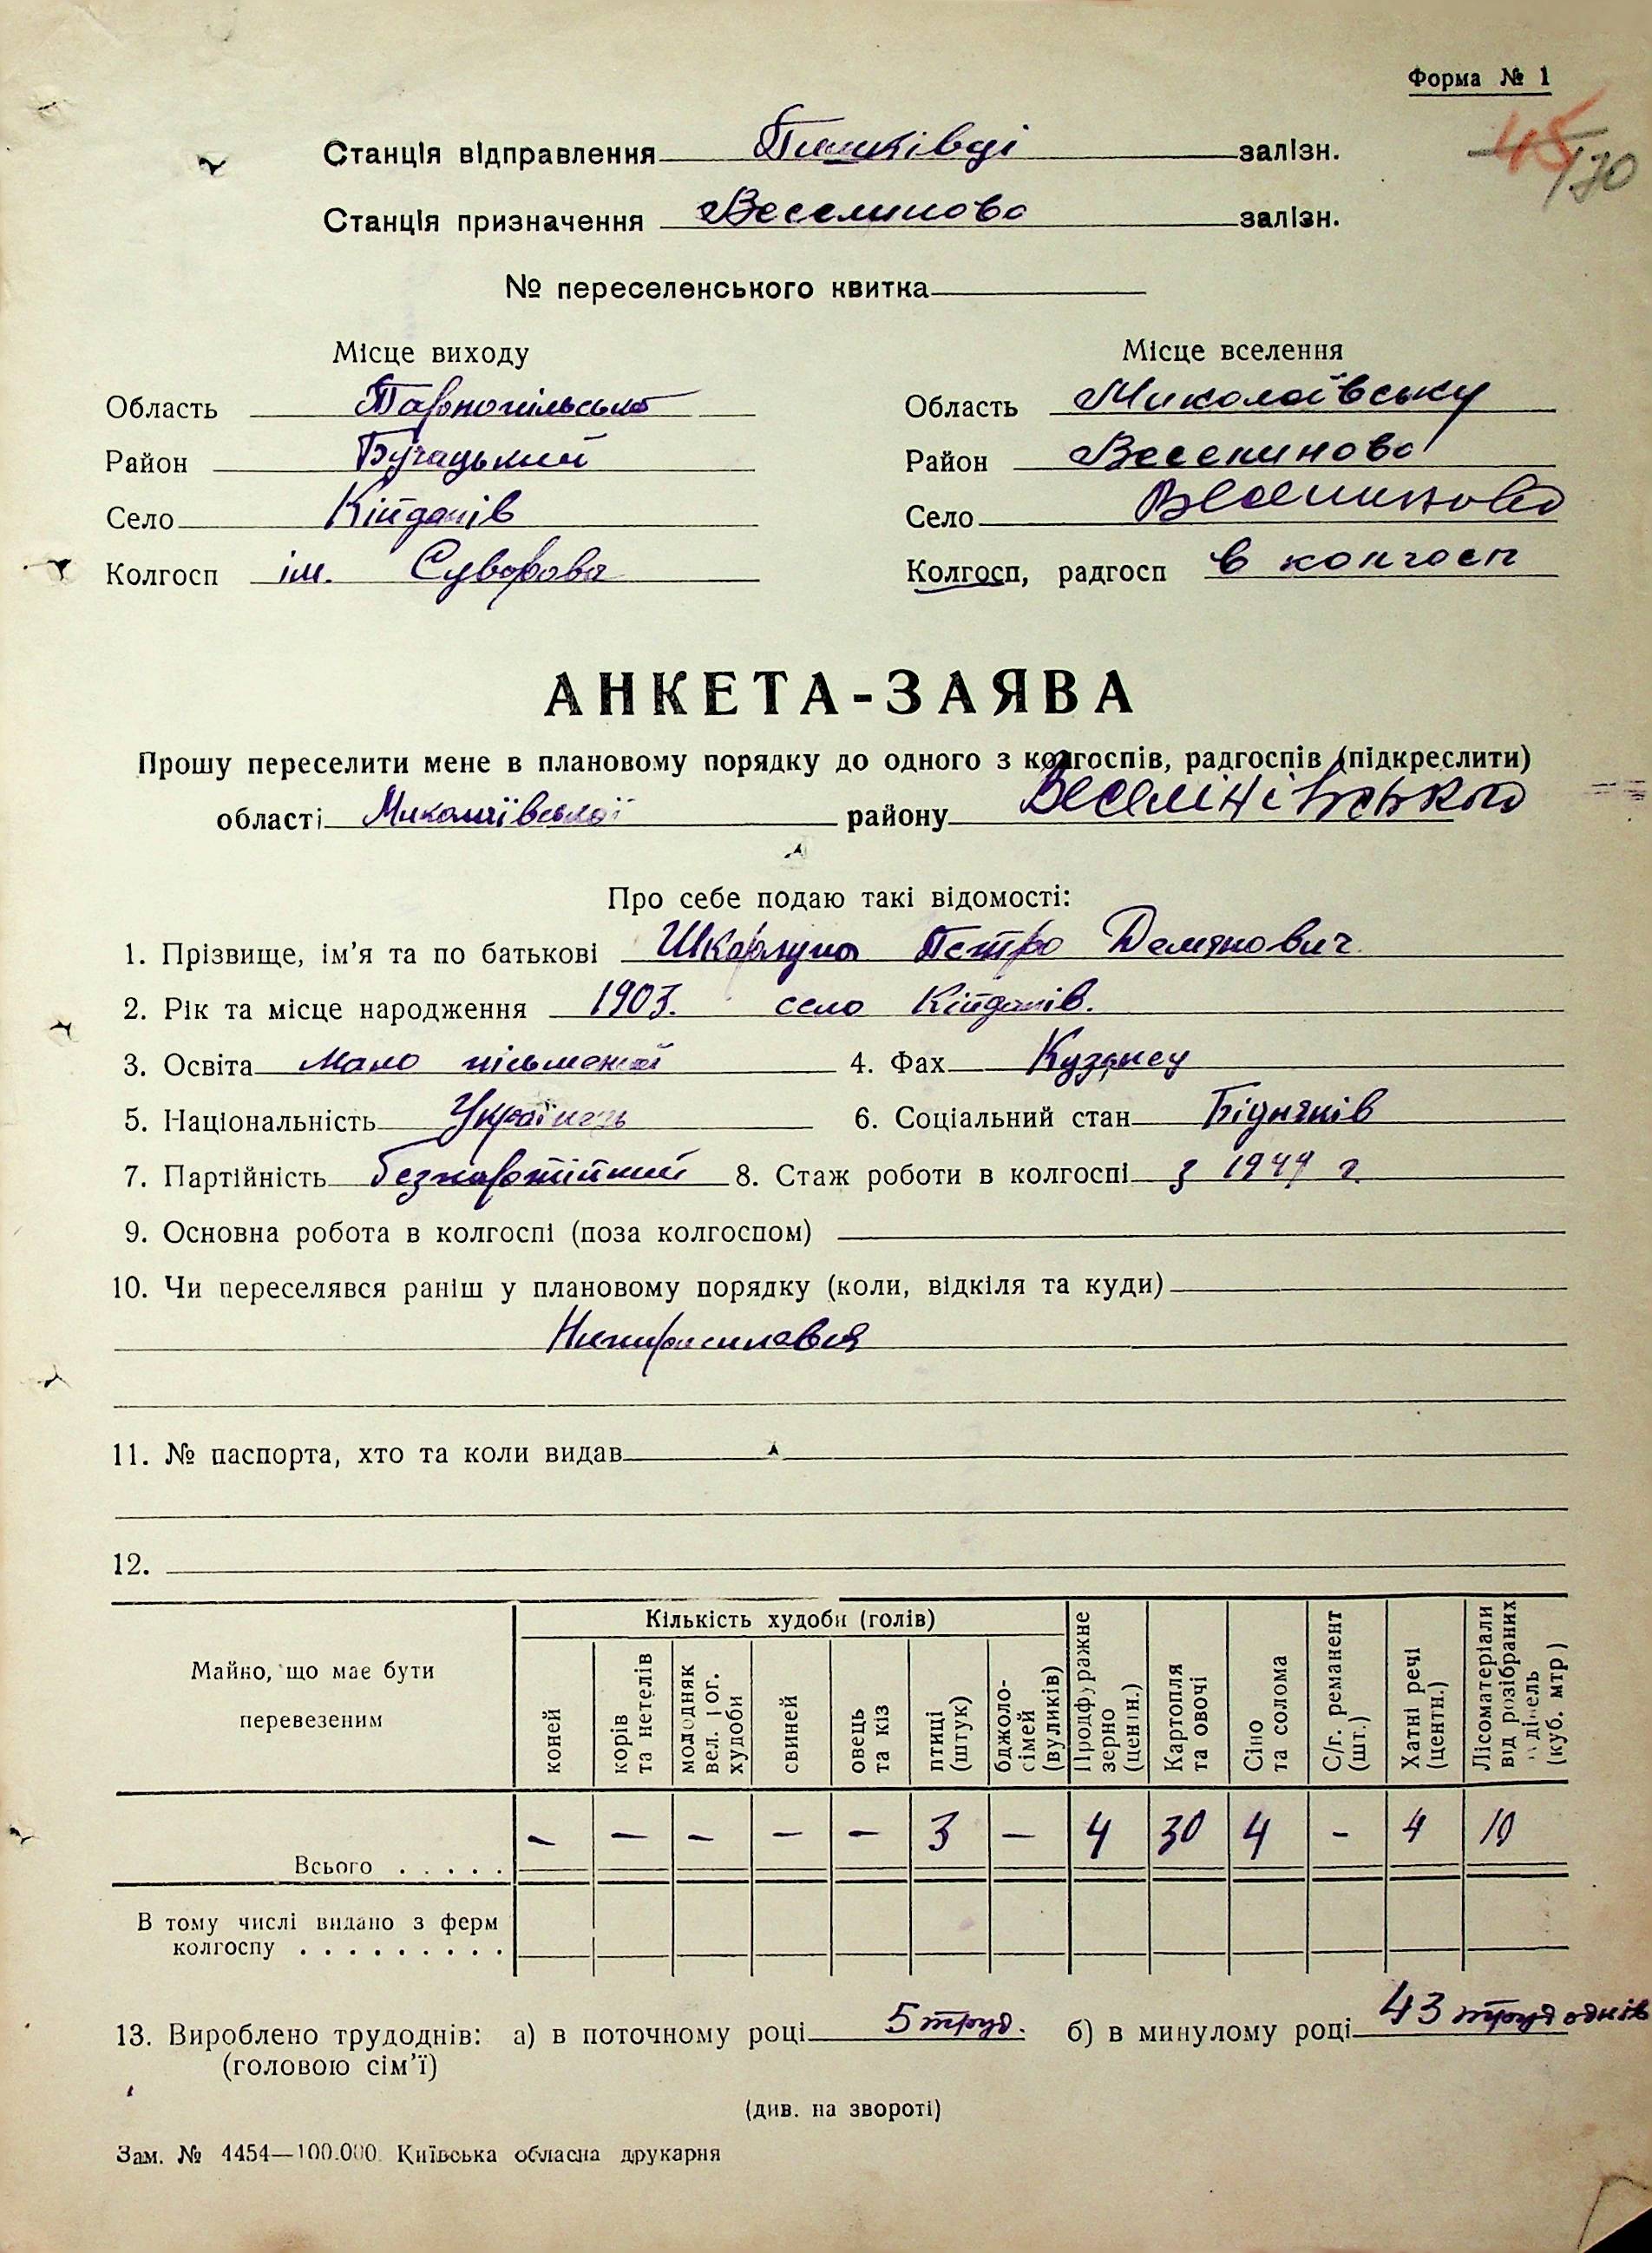 Форма № 1
45 170
Станція відправлення Пишківці залізн.
Станція призначення Веселиново залізн.
№ переселенського квитка
Місце виходу Місце вселення
Область Тарнопільська Область Миколаївську
Район Бучацький Район Веселиново
Село Кійданів Село Веселиново
Колгосп ім. Суворова Колгосп, радгосп в колгосп
АНКЕТА-ЗАЯВА
Прошу переселити мене в плановому порядку до одного з колгоспів, радгоспів (підкреслити)
області Миколаївської району Веселінівського
Про себе подаю такі відомості:
1. Прізвище, ім'я та по батькові Шкарлупа Петро Демянович
2. Рік та місце народження 1903. село Кійданів.
3. Освіта мало письмений 4. Фах Кузнец
5. Національність Українець 6. Соціальний стан Бідняків
7. Партійність безпартійний 8. Стаж роботи в колгоспі з 1949 г.
9. Основна робота в колгоспі (поза колгоспом)
10. Чи переселявся раніш у плановому порядку (коли, відкіля та куди)
11. № паспорта, хто та коли видав
12.
Майно, що має бути перевезеним
Кількість худоби (голів)
коней
корів та нетелів
молодняк вел. рог. худоби
свиней
овець та кіз
птиці (штук)
бджоло-сімей (вуликів)
Продфуражне зерно (центн.)
Картопля та овочі
Сіно та солома
С/г. реманент (шт.)
Хатні речі (центн.)
Лісоматеріали від розібраних будівель (куб. мтр)
Всього . . . . . – – – – – 3 – 4 30 4 – 4 10
В тому числі видано з ферм
колгоспу . . . . . . . . .
13. Вироблено трудоднів: а) в поточному році 5 труд. б) в минулому році 43 трудоднів
(головою сім'ї)
(див. на звороті)
Зам. № 4454—100.000. Київська обласна друкарня